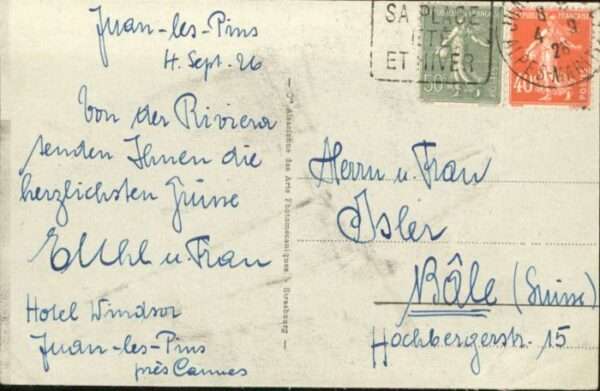 Juan-les-Pins
4. Sept. 26
Von der Riviera
senden Ihnen die
herzlichsten Grüsse
u. Frau
Hotel Windsor
Juan-les-Pins
près Cannes
Cie Alsacienne des Arts Photomécaniques, Strasbourg
SA PLAGE
ÉTÉ
ET HIVER
50c
40c
4 9
26
Herrn u. Frau
Isler
Bâle (Suisse)
Hochbergerstr. 15